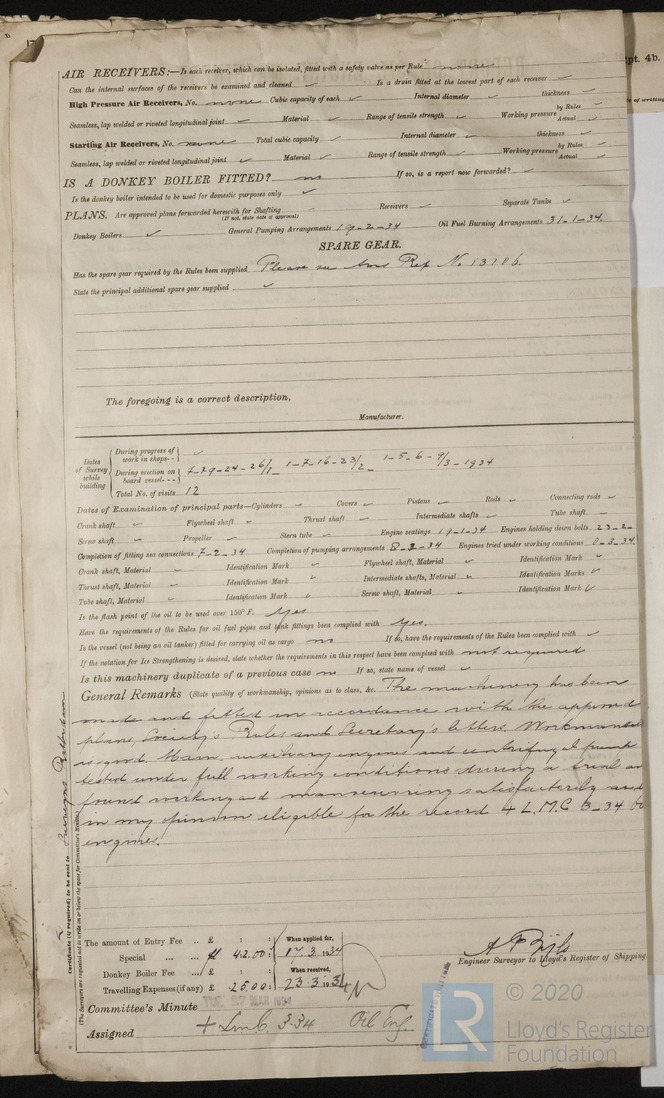 pt. 4b.
AIR RECEIVERS:—Is each receiver, which can be isolated, fitted with a safety valve as per Rule none
Can the internal surfaces of the receivers be examined and cleaned ✓ Is a drain fitted at the lowest part of each receiver ✓
High Pressure Air Receivers, No. none Cubic capacity of each ✓ Internal diameter ✓ thickness ✓
Seamless, lap welded or riveted longitudinal joint ✓ Material ✓ Range of tensile strength ✓ Working pressure by Rules ✓ Actual ✓
Starting Air Receivers, No. none Total cubic capacity ✓ Internal diameter ✓ thickness ✓
Seamless, lap welded or riveted longitudinal joint ✓ Material ✓ Range of tensile strength ✓ Working pressure by Rules ✓ Actual ✓
IS A DONKEY BOILER FITTED? no If so, is a report now forwarded? ✓
Is the donkey boiler intended to be used for domestic purposes only ✓
PLANS. Are approved plans forwarded herewith for Shafting ✓ Receivers ✓ Separate Tanks ✓
(If not, state date of approval)
Donkey Boilers ✓ General Pumping Arrangements 19-2-34 Oil Fuel Burning Arrangements 31-1-34.
SPARE GEAR.
Has the spare gear required by the Rules been supplied Please see Ams Rep No. 13186.
State the principal additional spare gear supplied ✓
The foregoing is a correct description,
Manufacturer.
Dates of Survey while building
During progress of work in shops - - ✓
During erection on board vessel - - - 1-7-16-23/2 1-5-6- /3-1934
Total No. of visits 12
Dates of Examination of principal parts—Cylinders ✓ Covers ✓ Pistons ✓ Rods ✓ Connecting rods ✓
Crank shaft ✓ Flywheel shaft ✓ Thrust shaft ✓ Intermediate shafts ✓ Tube shaft ✓
Screw shaft ✓ Propeller ✓ Stern tube ✓ Engine seatings 19-1-34 Engines holding down bolts 23-2-
Completion of fitting sea connections 7-2-34 Completion of pumping arrangements 8-3-34 Engines tried under working conditions 8-3-34.
Crank shaft, Material ✓ Identification Mark ✓ Flywheel shaft, Material ✓ Identification Mark ✓
Thrust shaft, Material ✓ Identification Mark ✓ Intermediate shafts, Material ✓ Identification Marks ✓
Tube shaft, Material ✓ Identification Mark ✓ Screw shaft, Material ✓ Identification Mark ✓
Is the flash point of the oil to be used over 150° F. Yes
Have the requirements of the Rules for oil fuel pipes and tank fittings been complied with Yes.
Is the vessel (not being an oil tanker) fitted for carrying oil as cargo no If so, have the requirements of the Rules been complied with ✓
If the notation for Ice Strengthening is desired, state whether the requirements in this respect have been complied with not required
Is this machinery duplicate of a previous case no If so, state name of vessel ✓
General Remarks (State quality of workmanship, opinions as to class, &c. The machinery has been
made and fitted in accordance with the approved
plans, Society's Rules and Secretary's letters. Workmanship
is good. Main, auxiliary engines and centrifugal pump
tested under full working conditions during a trial and
found working and manoeuvring satisfactorily and
in my opinion eligible for the record + L.M.C 3-34 Oil
engine.
Certificate (if required) to be sent to Surveyors Rotterdam
(The Surveyors are requested not to write on or below the space for Committee's Minute.)
The amount of Entry Fee .. £ : : When applied for,
Special ... ... fl 42.00: 17.3.1934
Donkey Boiler Fee ... £ : : When received,
Travelling Expenses (if any) £ 25.00: 23.3.1934
Engineer Surveyor to Lloyd's Register of Shipping.
Committee's Minute TUE. 27 MAR 1934
Assigned + Lmc. 3.34 Oil Eng.
LR
© 2020
Lloyd's Register
Foundation